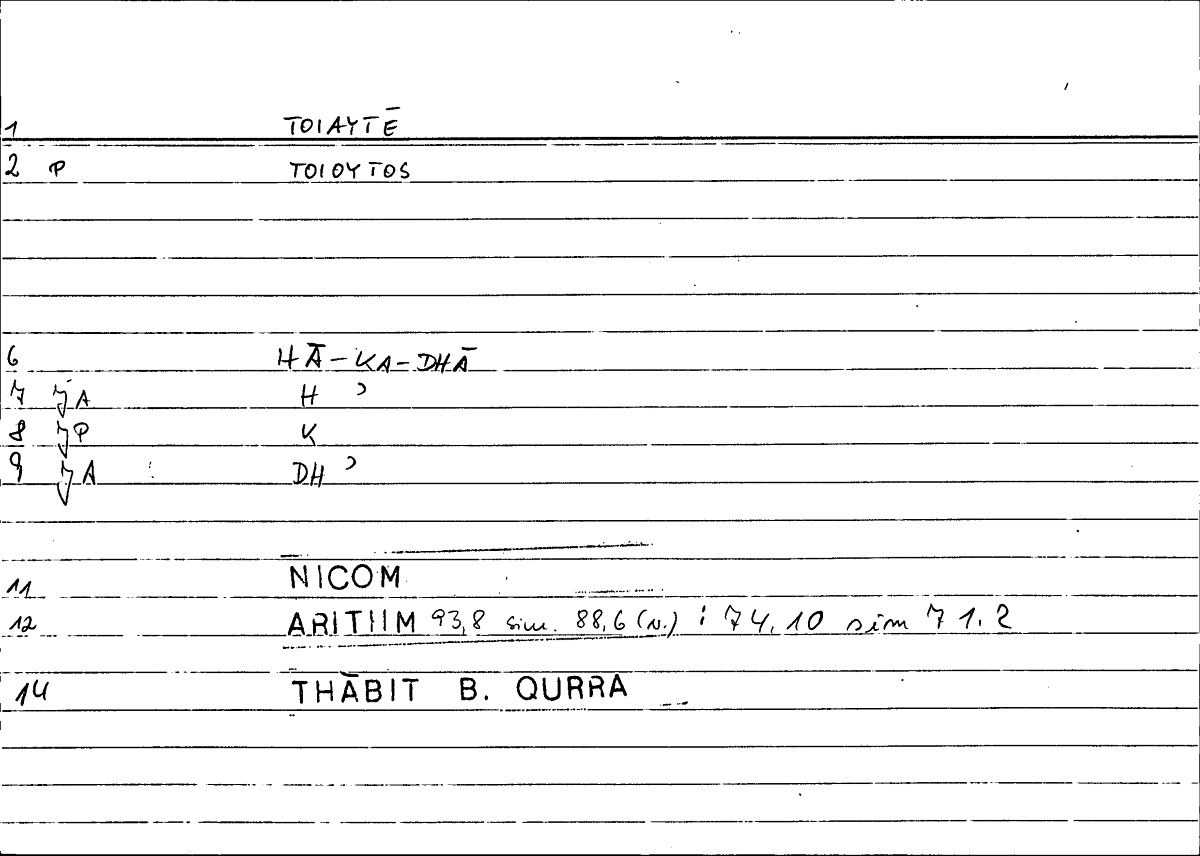 1 TOIAYTĒ
2 P TOIOYTOS
6 HĀ-KA-DHĀ
7 JA H ʾ
8 JP K
9 JA DH ʾ
11 NICOM
12 ARITIIM 93,8 sim. 88,6 (N.) : 74.10 sim 71.2
14 THĀBIT B. QURRA